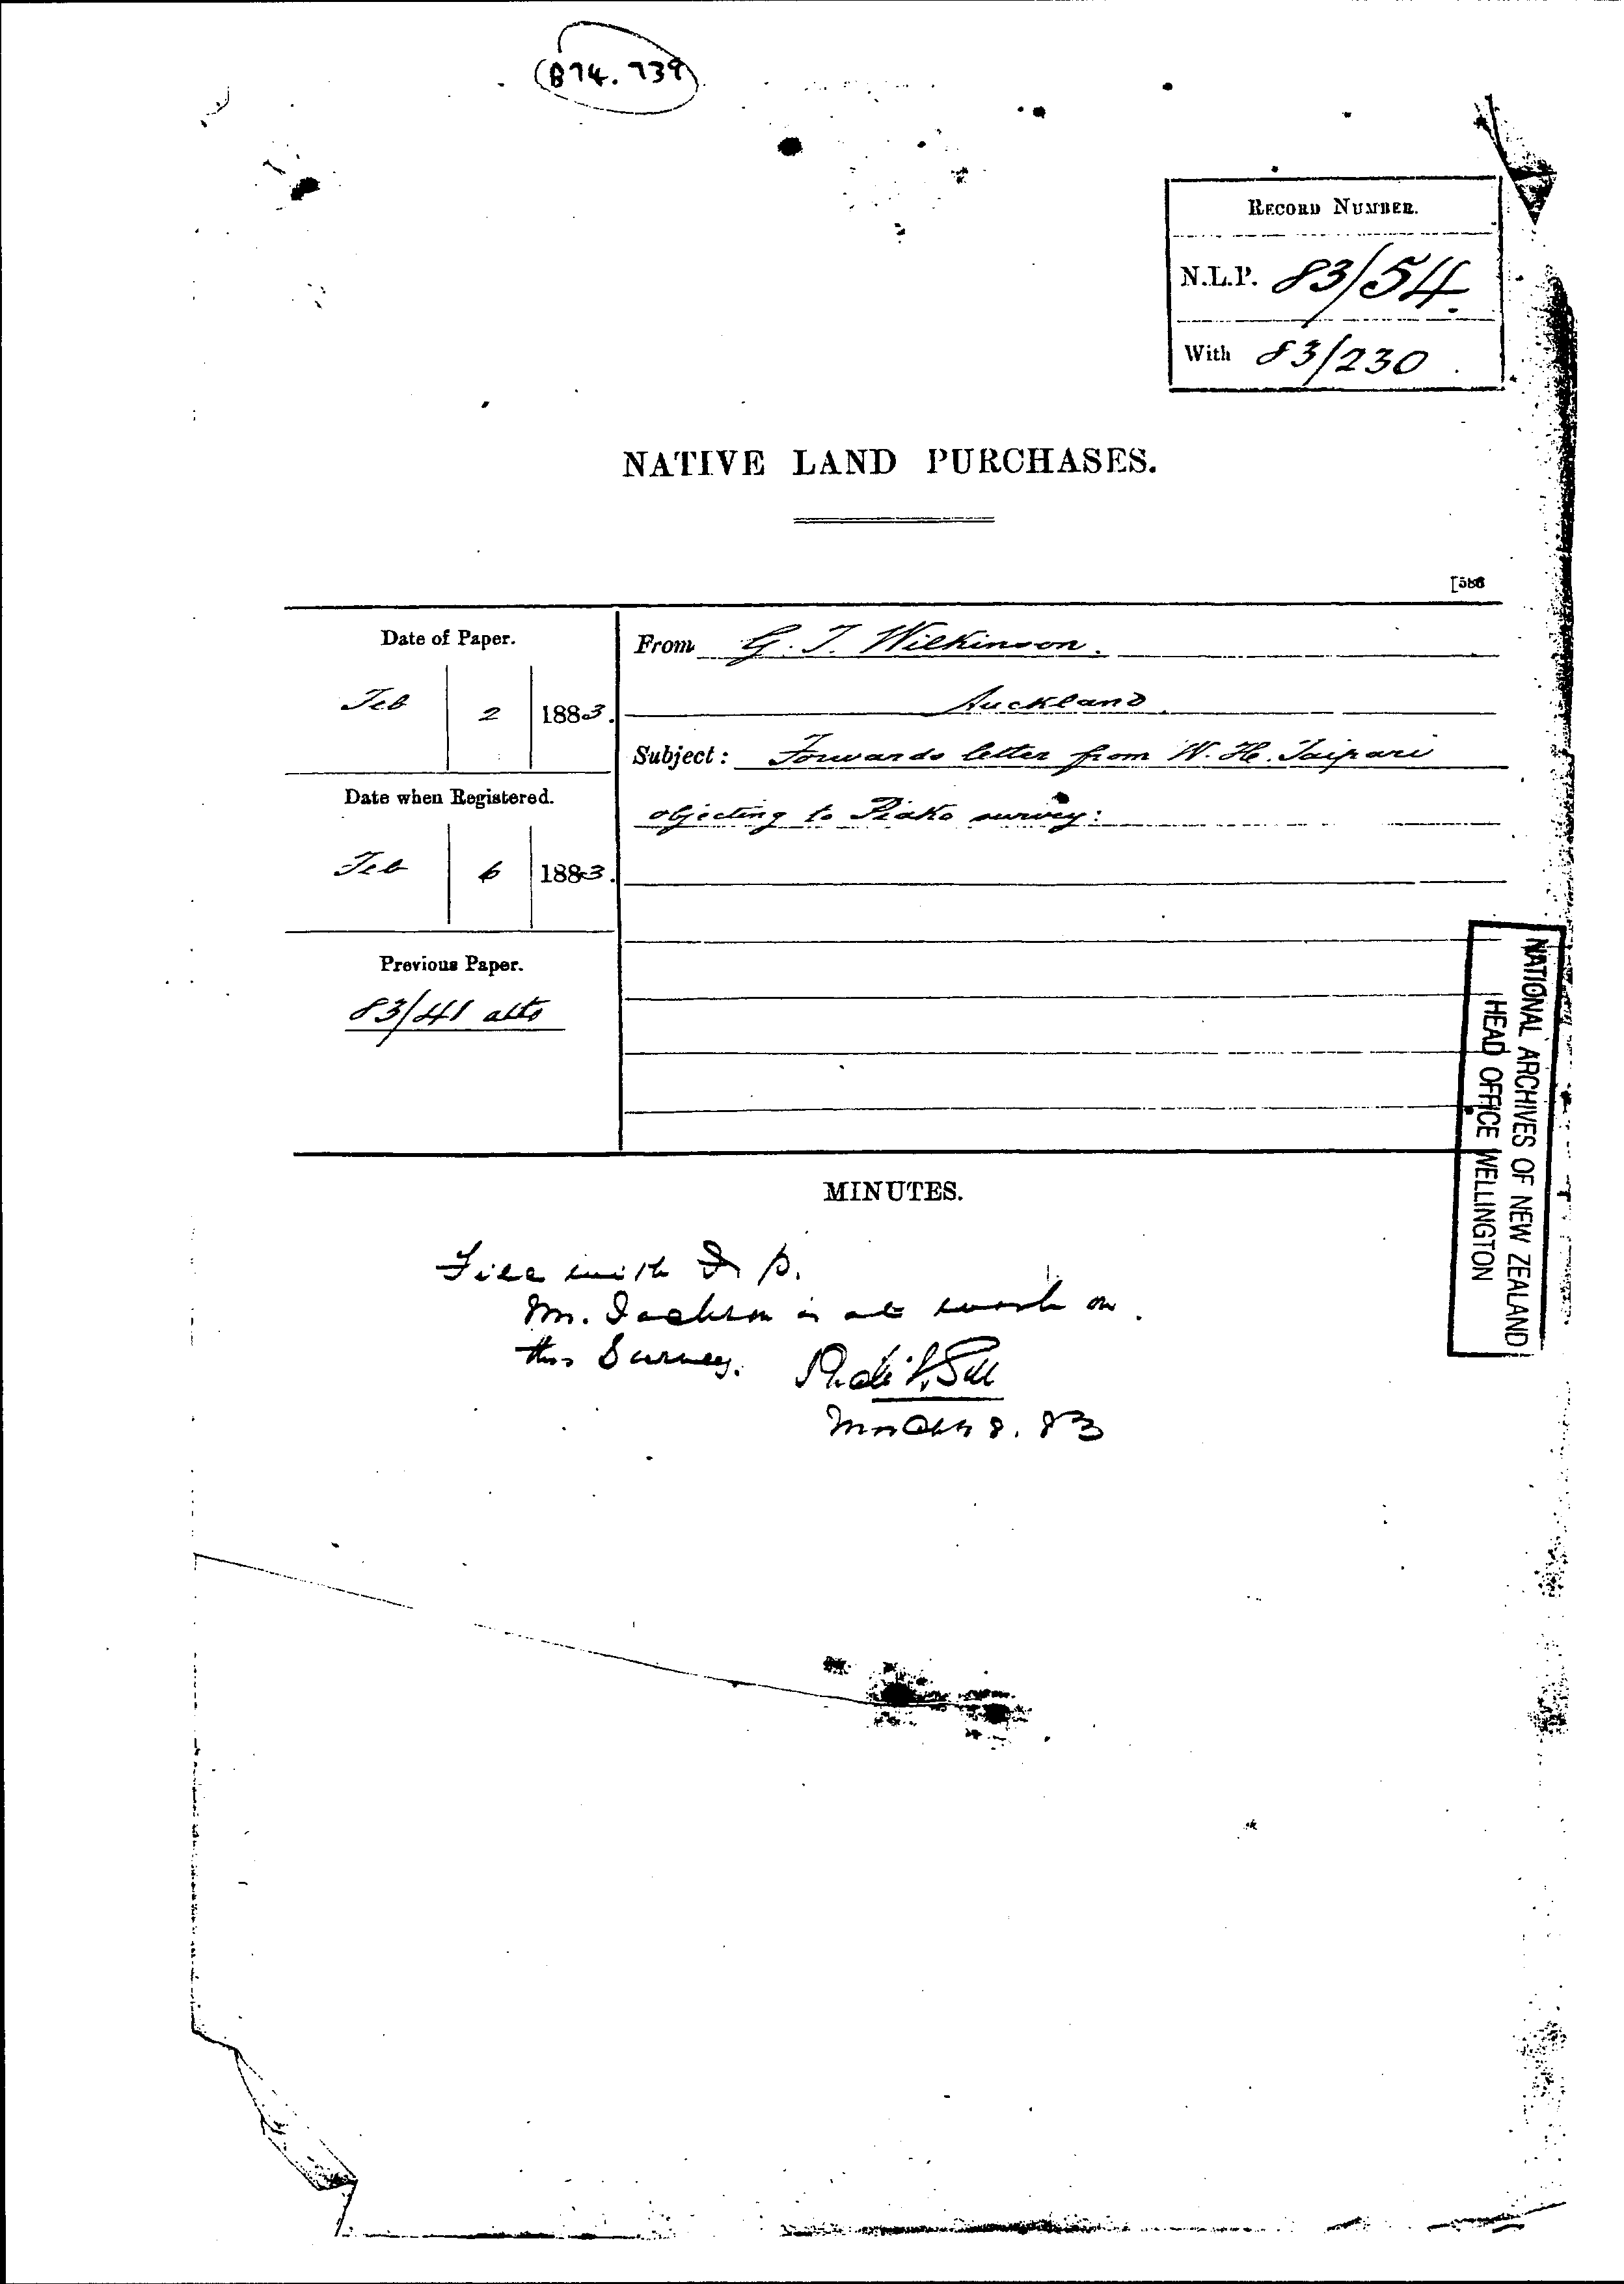 (B74.739)
RECORD NUMBER.
N.L.P. 83/54.
With 83/230
NATIVE LAND PURCHASES.
[586
Date of Paper.
Feb 2 1883.
Date when Registered.
Feb 6 1883.
Previous Paper.
83/41 atto
From G. T. Wilkinson.
Auckland.
Subject: Forwards letter from W. H. Taipari
objecting to Piako survey:
NATIONAL ARCHIVES OF NEW ZEALAND
HEAD OFFICE WELLINGTON
MINUTES.
File with
Mr. Jackson is at work on.
this Survey.
March 8. 83